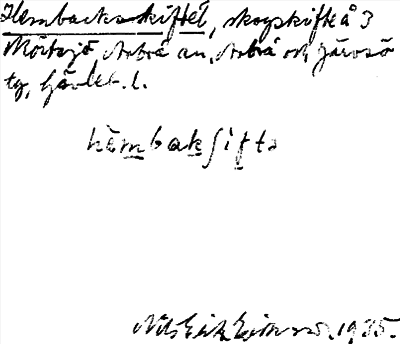 Hembacksskiftet, skogskifte å 3
Mörtsjö Arbrå sn, Arbrå och Järvsö
tg, Gävleb. l.
hèmbakʃifta
Nils Erik Eriksson, 1935.